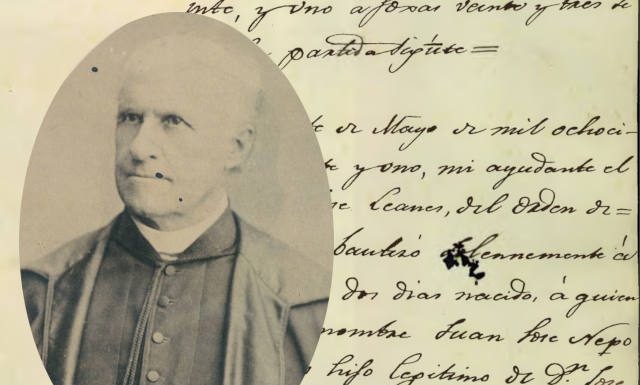 y uno a foxas veinte y tres
partida sig.te =
de Mayo de mil ochoci
y uno, mi ayudante el
Leanes, del Orden de=
bautizó solennemente á
dos dias nacido, á quien
nombre Juan Jose Nepo
hijo legitimo de Dn. Jose